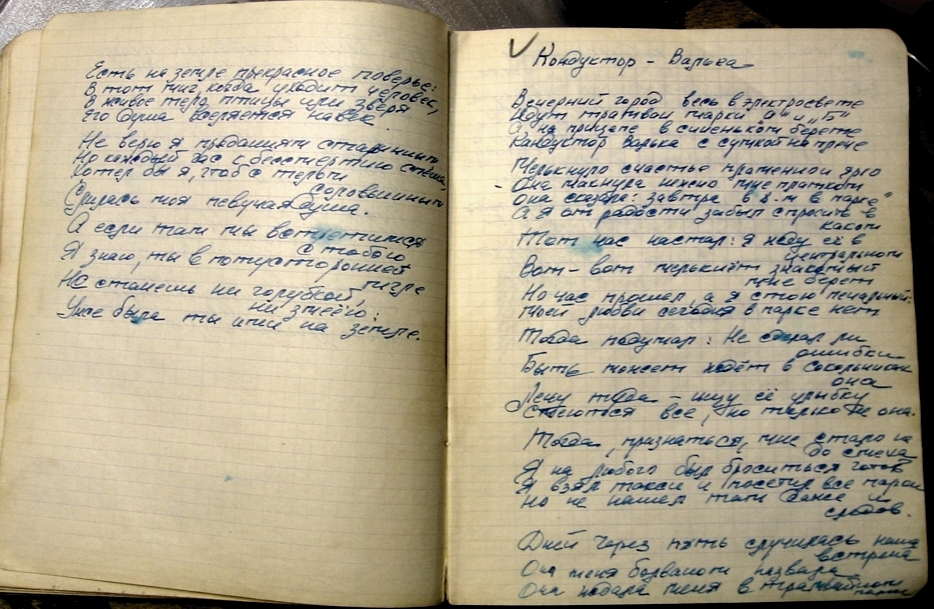 Есть на земле прекрасное поверье:
В тот миг, когда уходит человек,
В живое тело птицы или зверя
Его душа вселяется навек.
Не верю я преданиям старинным
Но каждый час к бессмертию спеша,
Хотел бы я, чтоб с телом
соловьиным
Слилась моя певучая душа.
А если там мы встретимся
с тобою
Я знаю, ты в потусторонней
мгле
Не станешь ни голубкой,
ни змеёю:
Уже была ты ими на земле.
Кондуктор - Варька
Вечерний город весь в электросвете
Идут трамваи марки "А" и "Б"
А на прицепе в синеньком берете
Кондуктор Варька с сумкой на плече
Мелькнуло счастье пламенно, ярко
- Она махнула нежно мне платком
Она сказала: завтра в 8-м в парке"
А я от радости забыл спросить в
каком
Тот час настал: я жду её в
центральном
Вот-вот мелькнёт знакомый
мне берет
Но час прошел, а я стою печальный:
Моей любви сегодня в парке нет
Тогда подумал: Не сделал ли
ошибки
Быть может ждёт в Сокольниках
она
Лечу туда - ищу её улыбку
Смеються все, но только не она.
Тогда, признаться, мне стало не
до смеха
Я на любого был броситься готов
Я взял такси и посетил все парки
Но не нашел там даже и
следов.
Дней через пять случилась наша
встреча
Она меня болваном назвала
Она ждала меня в трамвайном
парке